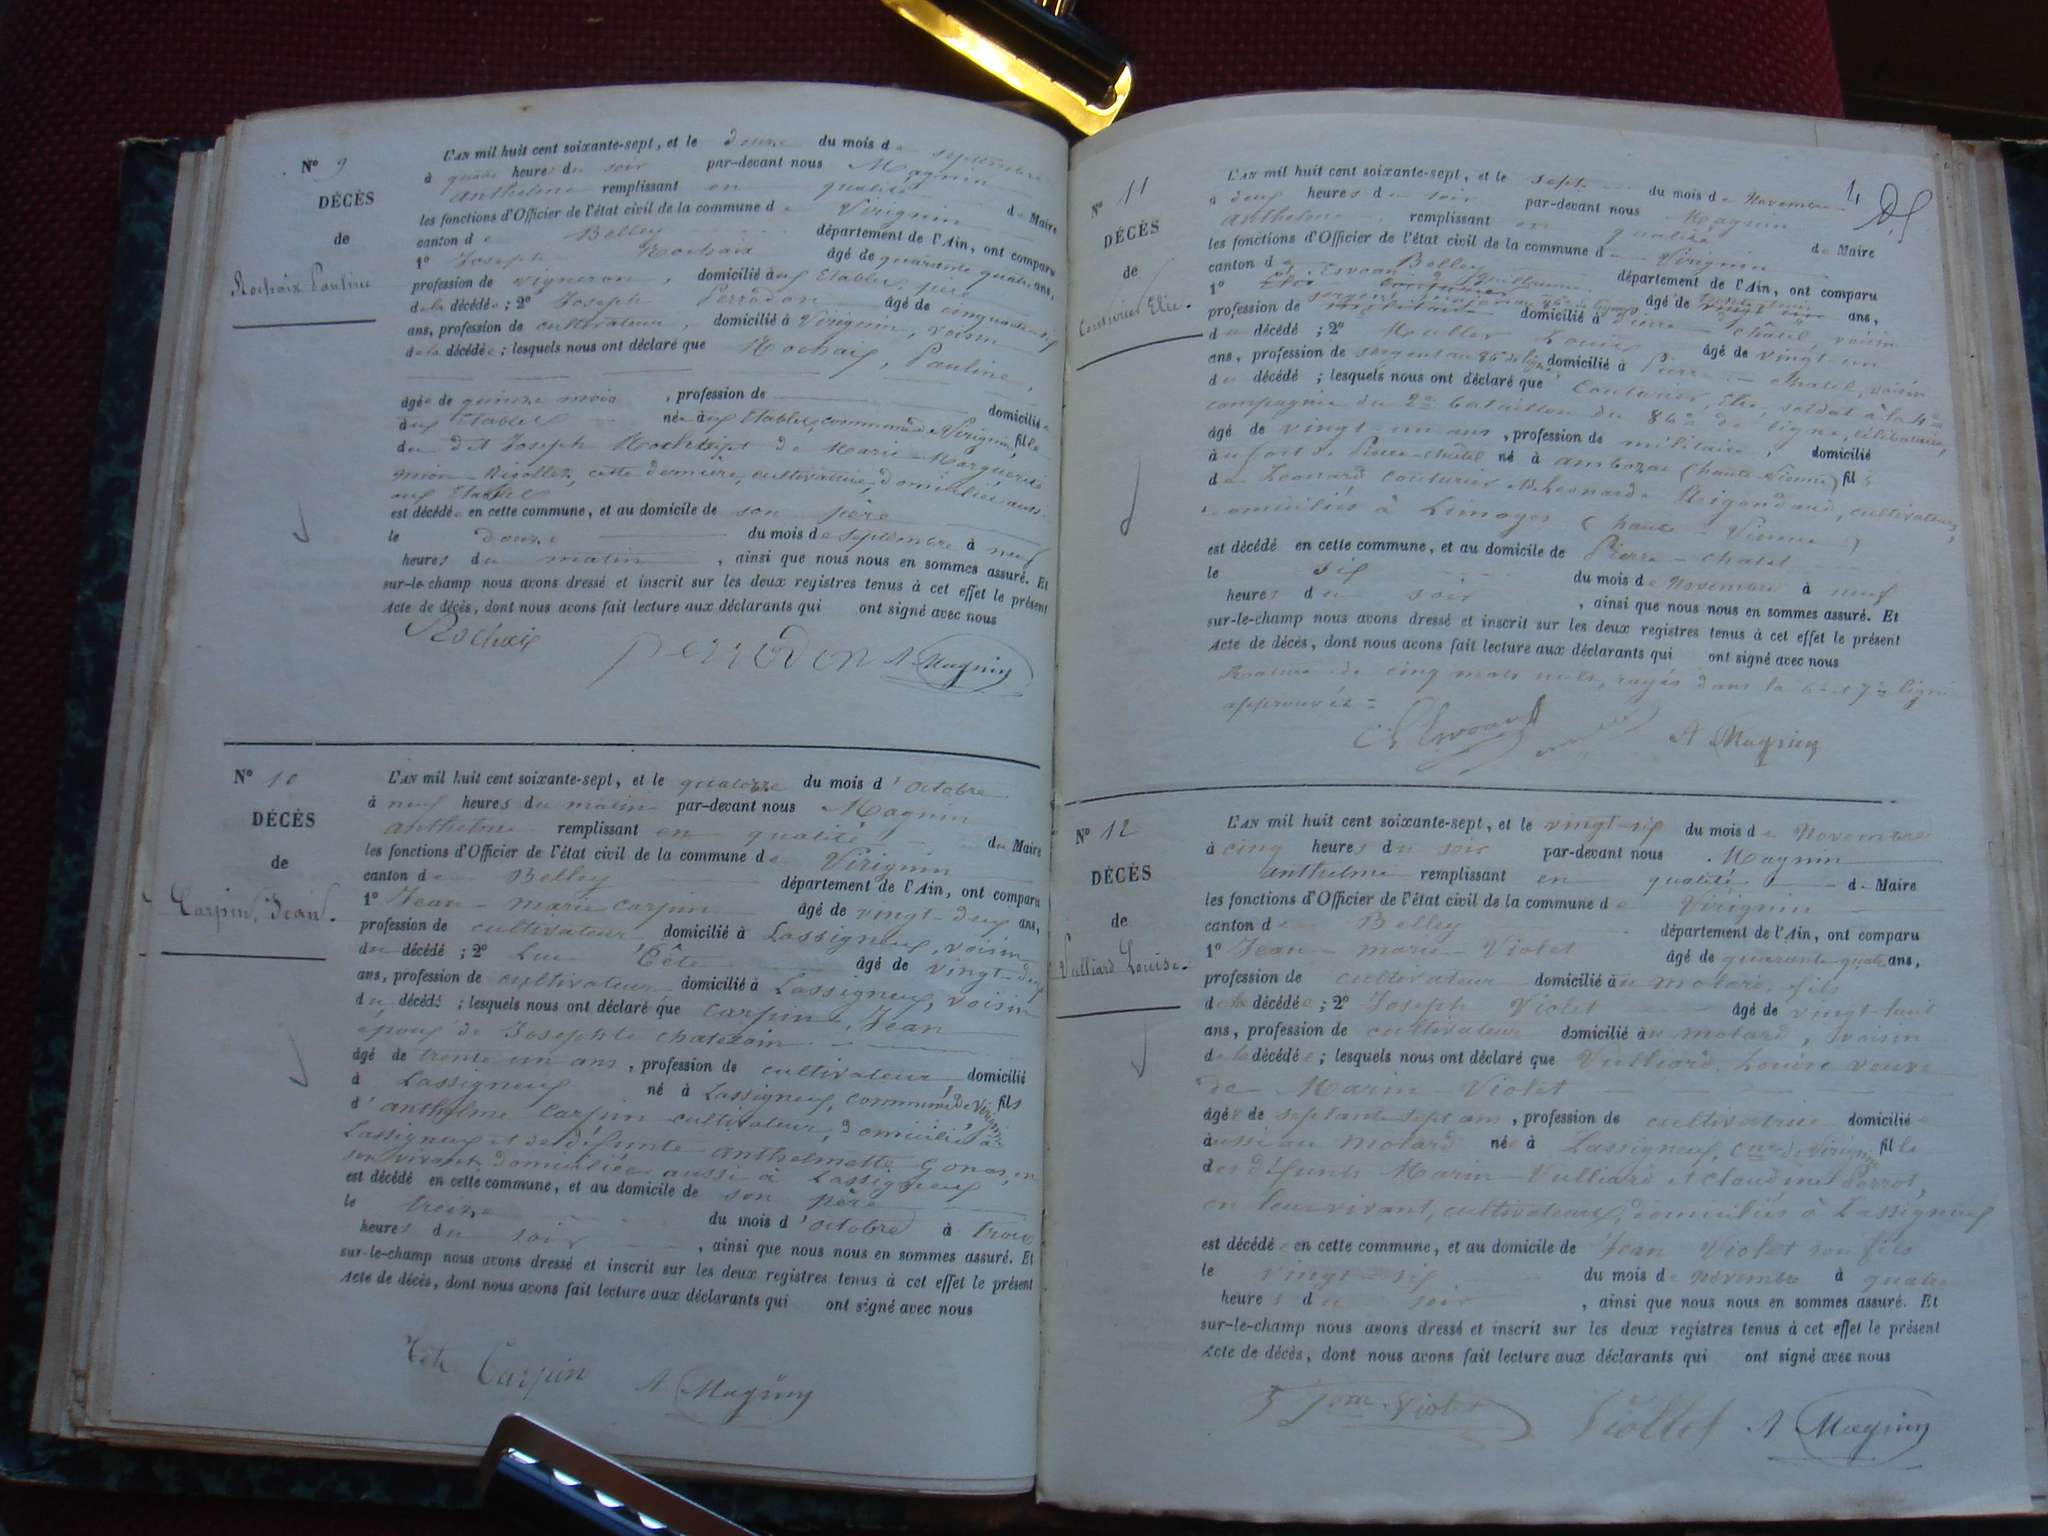 N° 9
DÉCÈS
de
Rochaix Pauline
L'AN mil huit cent soixante-sept, et le douze du mois de septembre
à quatre heures du soir par-devant nous Magnin
anthelme remplissant en qualité de Maire
les fonctions d'Officier de l'état civil de la commune de Virignin
canton de Belley département de l'Ain, ont comparu
1° Joseph Rochaix âgé de quarante quatre ans,
profession de vigneron, domicilié aux Etables, père
de la décédée; 2° Joseph Perrodon âgé de cinquante six
ans, profession de cultivateur, domicilié à Virignin, voisin
de la décédée; lesquels nous ont déclaré que Rochaix, Pauline,
âgée de quinze mois, profession de domiciliée
aux Etables née aux Etables, commune de Virignin, fille
du dit Joseph Rochaix et de Marie Marguerite
Rigollet, cette dernière, cultivatrice, domiciliée aussi
aux Etables
est décédée en cette commune, et au domicile de son père
le douze du mois de septembre à neuf
heures du matin, ainsi que nous nous en sommes assuré. Et
sur-le-champ nous avons dressé et inscrit sur les deux registres tenus à cet effet le présent
Acte de décès, dont nous avons fait lecture aux déclarants qui ont signé avec nous
Rochaix perrodon A Magnin
N° 10
DÉCÈS
de
Carpin, Jean.
L'AN mil huit cent soixante-sept, et le quatorze du mois d'octobre
à neuf heures du matin par-devant nous Magnin
anthelme remplissant en qualité de Maire
les fonctions d'Officier de l'état civil de la commune de Virignin
canton de Belley département de l'Ain, ont comparu
1° Jean-marie Carpin âgé de vingt-deux ans,
profession de cultivateur domicilié à Lassigneux, voisin
du décédé; 2° Luc Tête âgé de vingt-deux
ans, profession de cultivateur domicilié à Lassigneux, voisin
du décédé; lesquels nous ont déclaré que Carpin, Jean
époux de Josephte chaterain
âgé de trente un ans, profession de cultivateur, domicilié
à Lassigneux né à Lassigneux, commune de Virignin fils
d'anthelme Carpin cultivateur, domicilié à
Lassigneux et de défunte anthelmette Gonos, en
son vivant domiciliée aussi à Lassigneux
est décédé en cette commune, et au domicile de son père
le treize du mois d'octobre à trois
heures du soir, ainsi que nous nous en sommes assuré. Et
sur-le-champ nous avons dressé et inscrit sur les deux registres tenus à cet effet le présent
Acte de décès, dont nous avons fait lecture aux déclarants qui ont signé avec nous
Tête Carpin A Magnin
N° 11
DÉCÈS
de
Couturier Elie.
L'AN mil huit cent soixante-sept, et le sept du mois de Novembre
à deux heures du soir par-devant nous Magnin
anthelme, remplissant en qualité de Maire
les fonctions d'Officier de l'état civil de la commune de Virignin
canton de Belley département de l'Ain, ont comparu
1° Esvoan Guillaume âgé de ans,
profession de domicilié à Pierre Châtel, voisin
du décédé; 2° Muller Louis âgé de vingt un
ans, profession de sergent au 86e de ligne domicilié à Pierre-chatel, voisin
du décédé; lesquels nous ont déclaré que Couturier, Elie, soldat à la 4e
compagnie du 2e bataillon du 86e de ligne, célibataire,
âgé de vingt-un ans, profession de militaire, domicilié
au fort de Pierre-châtel né à ambazac (haute-Vienne) fils
de Leonard Couturier et de Leonarde Rigondaud, cultivateurs,
domiciliés à Limoges (haute-Vienne)
est décédé en cette commune, et au domicile de Pierre-chatel
le six du mois de Novembre à neuf
heures du soir, ainsi que nous nous en sommes assuré. Et
sur-le-champ nous avons dressé et inscrit sur les deux registres tenus à cet effet le présent
Acte de décès, dont nous avons fait lecture aux déclarants qui ont signé avec nous
Rature de cinq mots nuls, rayés dans la 6e et 7e ligne
approuvée =
A Magnin
N° 12
DÉCÈS
de
Vulliard Louise.
L'AN mil huit cent soixante-sept, et le vingt-six du mois de Novembre
à cinq heures du soir par-devant nous Magnin
anthelme remplissant en qualité de Maire
les fonctions d'Officier de l'état civil de la commune de Virignin
canton de Belley département de l'Ain, ont comparu
1° Jean-marie Violet âgé de quarante-quatre ans,
profession de cultivateur domicilié au molard, fils
de la décédée; 2° Joseph Violet âgé de vingt huit
ans, profession de cultivateur domicilié au molard, voisin
de la décédée; lesquels nous ont déclaré que Vulliard, Louise veuve
de Marin Violet
âgée de septante sept ans, profession de cultivatrice domiciliée
aussi au Molard née à Lassigneux, cne de Virignin fille
des défunts Marin Vulliard et Claudine Perrot,
en leur vivant, cultivateurs, domiciliés à Lassigneux
est décédée en cette commune, et au domicile de Jean Violet son fils
le vingt-six du mois de novembre à quatre
heures du soir, ainsi que nous nous en sommes assuré. Et
sur-le-champ nous avons dressé et inscrit sur les deux registres tenus à cet effet le présent
Acte de décès, dont nous avons fait lecture aux déclarants qui ont signé avec nous
Violet Viollet A Magnin